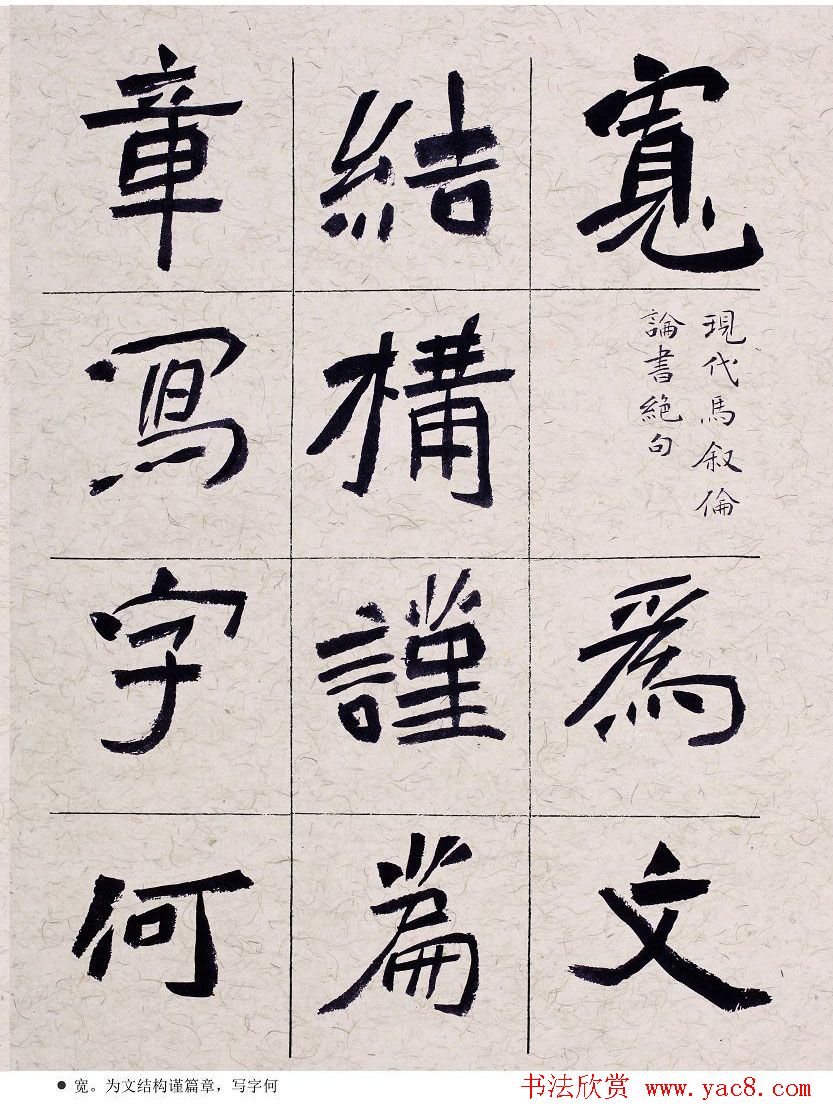 寬
現代馬叙倫
論書絶句
爲文
結構謹篇
章寫字何
● 宽。为文结构谨篇章，写字何
书法欣赏 www.yac8.com